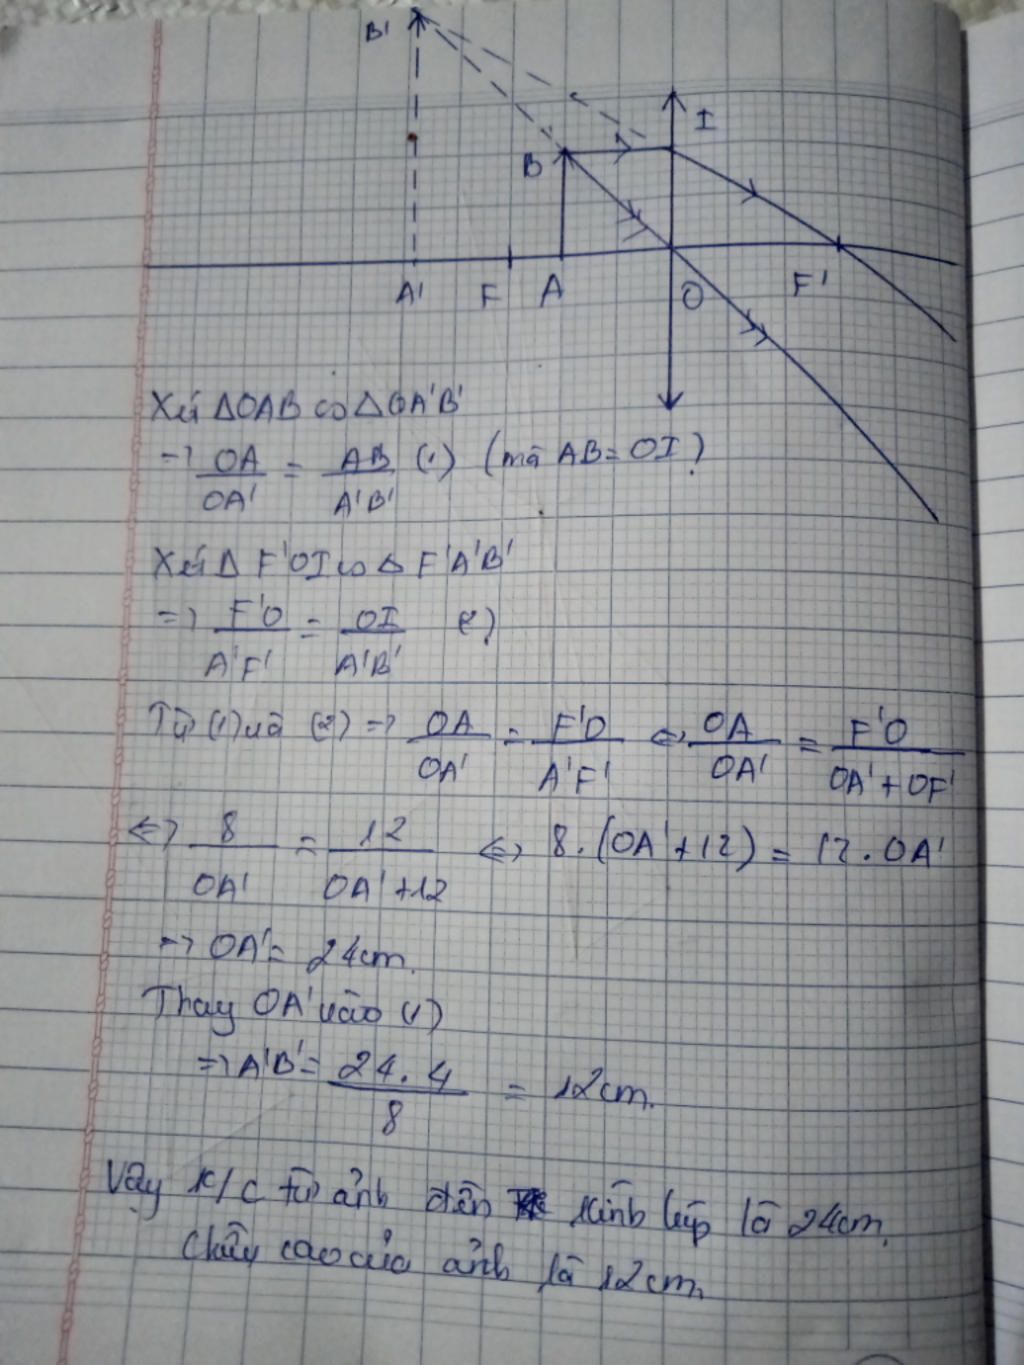 B'
I
B
A' F A O F'
Xét ΔOAB ∽ ΔOA'B'
=> OA/OA' = AB/A'B' (1) (mà AB = OI)
Xét Δ F'OI ∽ Δ F'A'B'
=> F'O/A'F' = OI/A'B' (2)
Từ (1) và (2) => OA/OA' = F'O/A'F' <=> OA/OA' = F'O/OA' + OF'
<=> 8/OA' = 12/OA' + 12 <=> 8.(OA' + 12) = 12.OA'
=> OA' = 24cm.
Thay OA' vào (1)
=> A'B' = 24.4/8 = 12cm.
Vậy K/C từ ảnh đến kính lúp là 24cm.
Chiều cao của ảnh là 12cm.